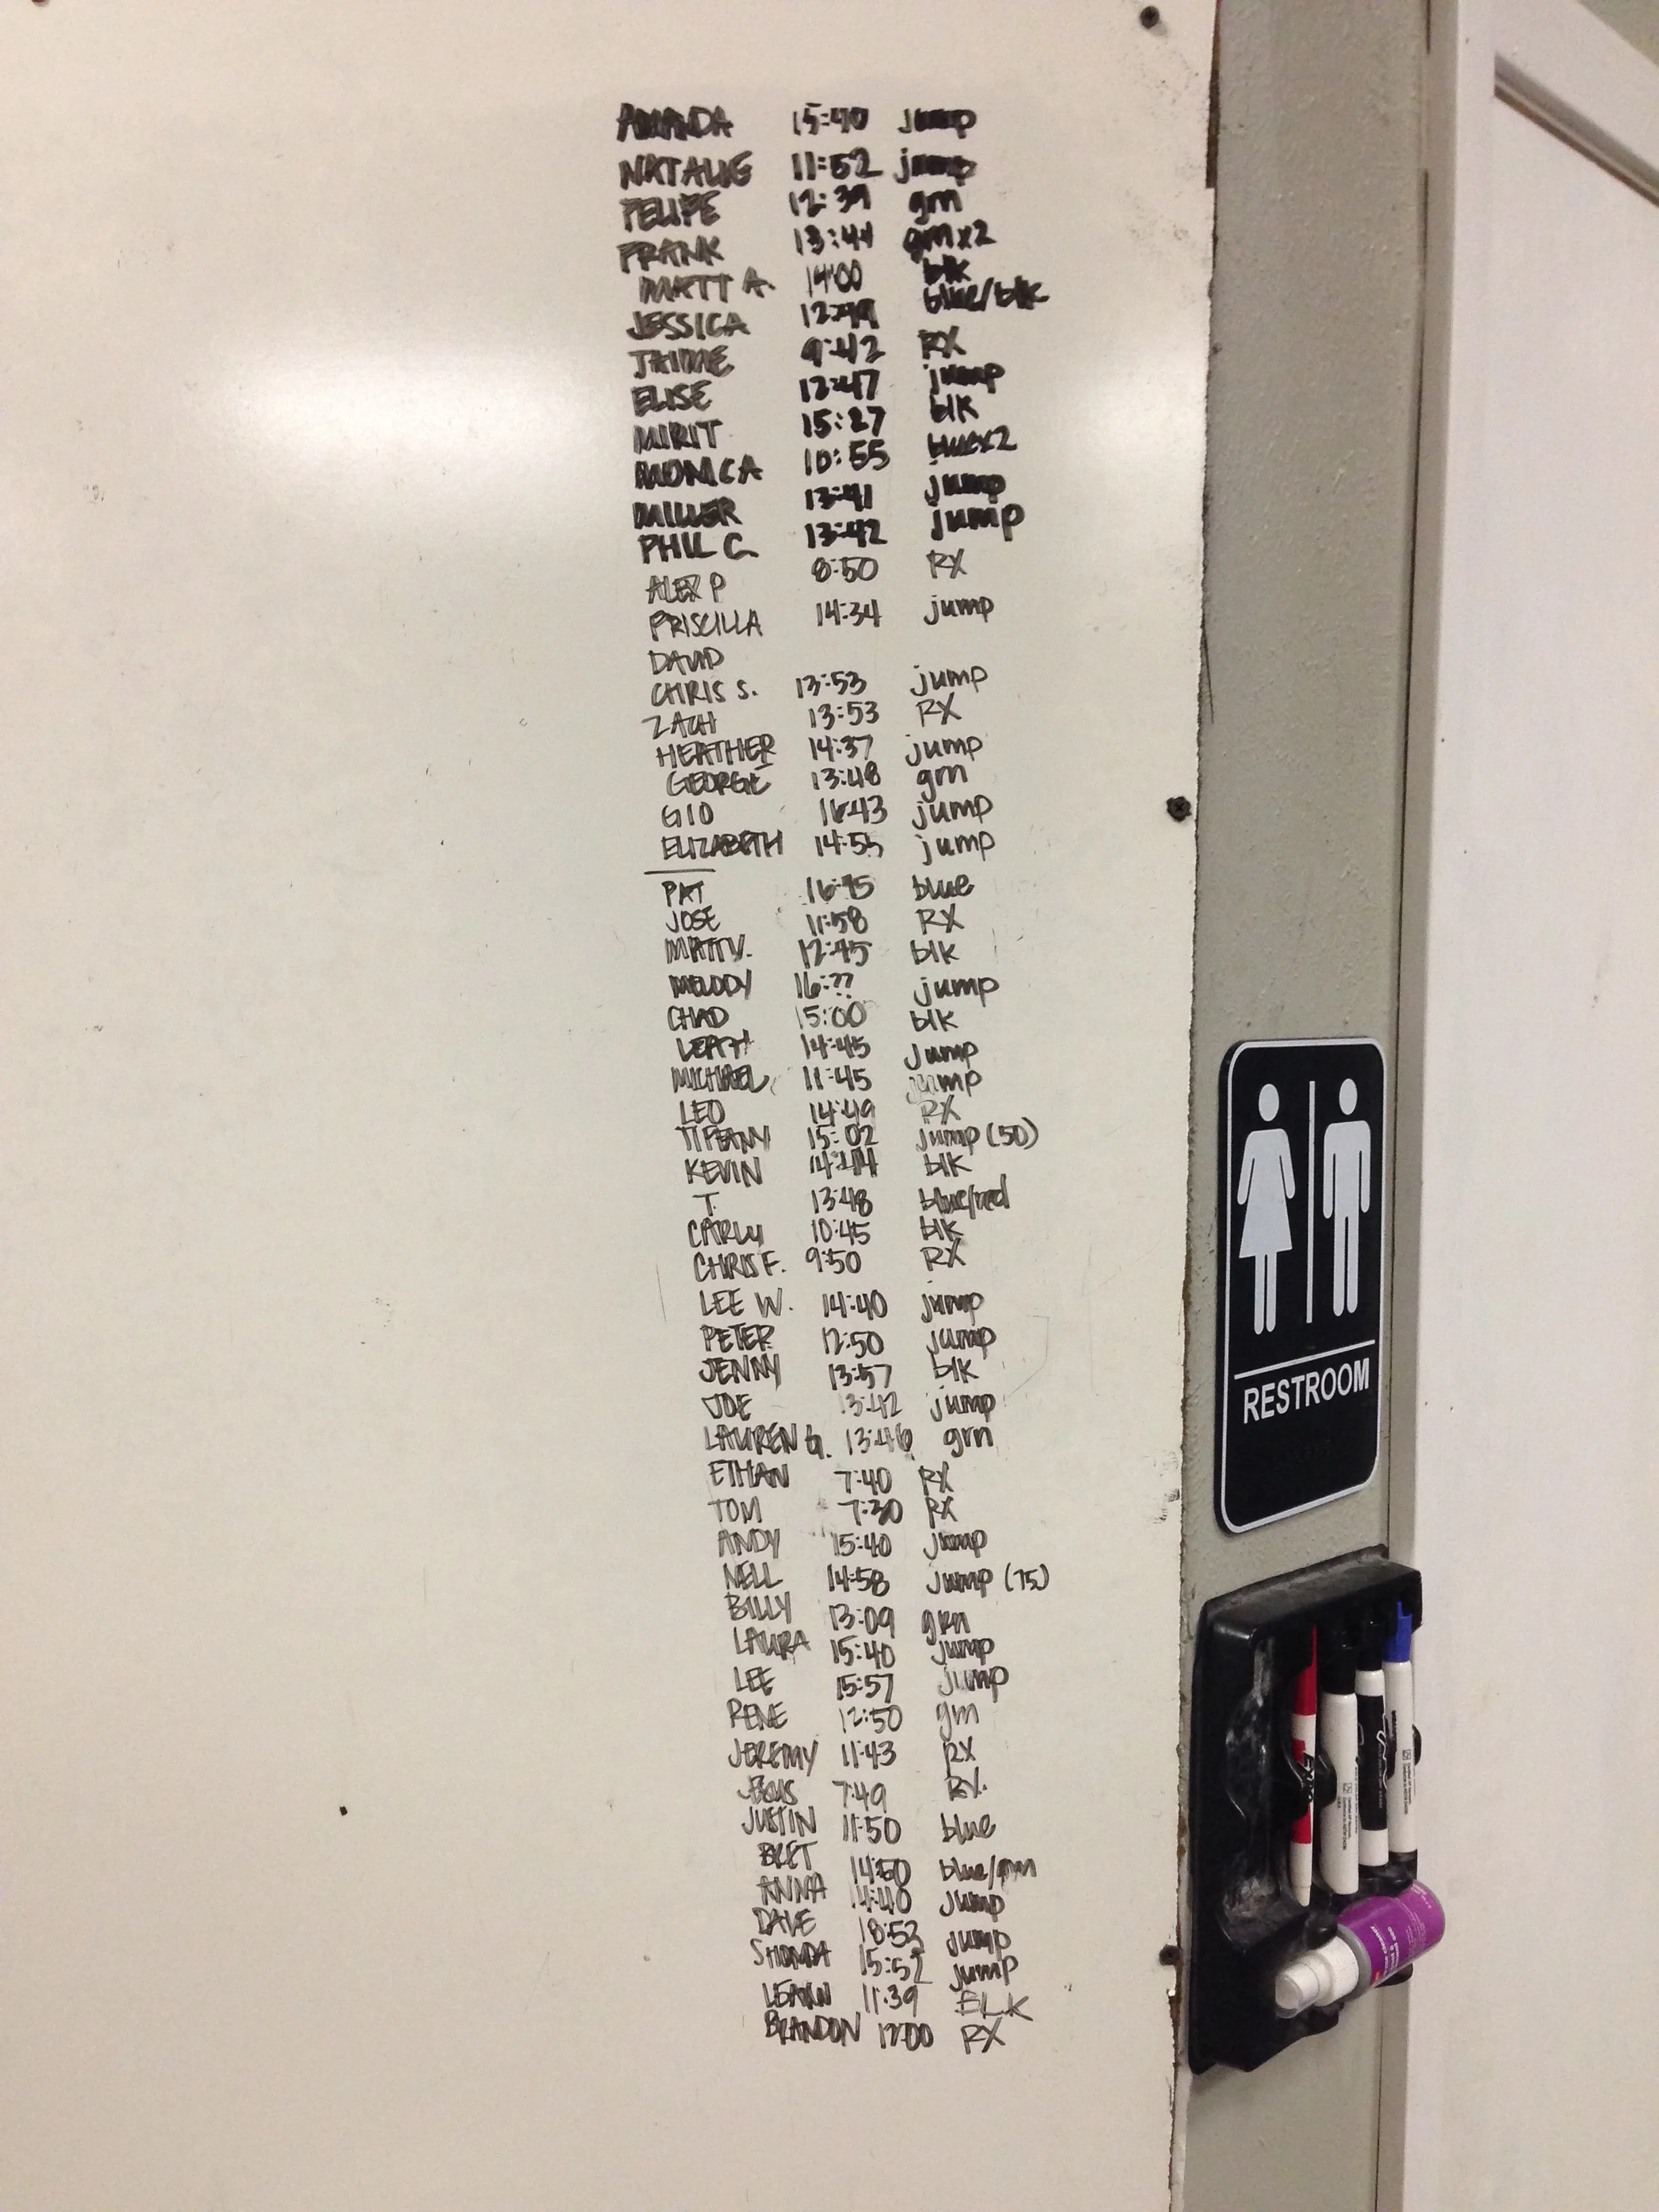 AMANDA 15:40 jump
NATALIE 11:52 jump
FELIPE 12:39 grn
FRANK 13:44 grnx2
MATT A. 14:00 blk
JESSICA 12:49 blue/blk
JAIME 9:42 RX
ELISE 12:47 jump
MIRIT 15:27 blk
MONICA 10:55 bluex2
MILLER 13:41 jump
PHIL C. 13:42 jump
ALEX P 8:50 RX
PRISCILLA 14:34 jump
DAVID
CHRIS S. 13:53 jump
ZACH 13:53 RX
HEATHER 14:37 jump
GEORGE 13:48 grn
GIO 16:43 jump
ELIZABETH 14:55 jump
PAT 16:45 blue
JOSE 11:58 RX
MATT V. 12:45 blk
MELODY 16:?? jump
CHAD 15:00 blk
LEAH 14:45 Jump
MICHAEL 11:45 jump
LEO 14:49 RX
TIFFANY 15:02 jump (50)
KEVIN 14:44 blk
T. 13:48 blue/red
CARLY 10:45 blk
CHRIS F. 9:50 RX
LEE W. 14:40 jump
PETER 12:50 jump
JENNY 13:57 blk
JOE 13:42 jump
LAUREN G. 13:46 grn
ETHAN 7:40 RX
TOM 7:30 RX
ANDY 15:40 jump
NELL 14:58 jump (75)
BILLY 13:09 grn
LAURA 15:40 jump
LEE 15:57 jump
RENE 12:50 grn
JEREMY 11:43 RX
JESUS 7:49 RX.
JUSTIN 11:50 blue
BRET 14:50 blue/grn
ANNA 14:40 jump
DAVE 18:53 jump
SHONDA 15:52 jump
LEANN 11:39 BLK
BRANDON 12:00 RX
RESTROOM